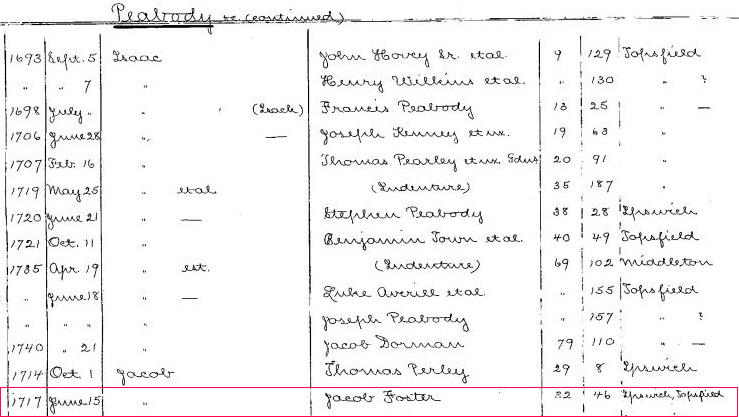 Peabody &c. (continued)
1693 Sept. 5 Isaac John Hovey Sr. et al. 9 129 Topsfield
" " 7 " Henry Wilkins et al. " 130 " ?
1698 July " " ' (Isack) Francis Peabody 13 25 " —
1706 June 28 " — Joseph Kenney et ux. 19 63 "
1707 Feb. 16 " Thomas Pearley et ux. Gdns 20 91 "
1719 May 25 " et al (Indenture) 35 187 "
1720 June 21 " — Stephen Peabody 38 28 Ipswich
1721 Oct. 11 " Benjamin Town et al. 40 49 Topsfield
1735 Apr. 19 " est. (Indenture) 69 102 Middleton
" June 18 " — Luke Averill et al. " 155 Topsfield
" " " " Joseph Peabody " 157 " ?
1740 " 21 " Jacob Dorman 79 110 " —
1714 Oct. 1 Jacob Thomas Perley 29 8 Ipswich
1717 June 15 " Jacob Foster 32 46 Ipswich, Topsfield